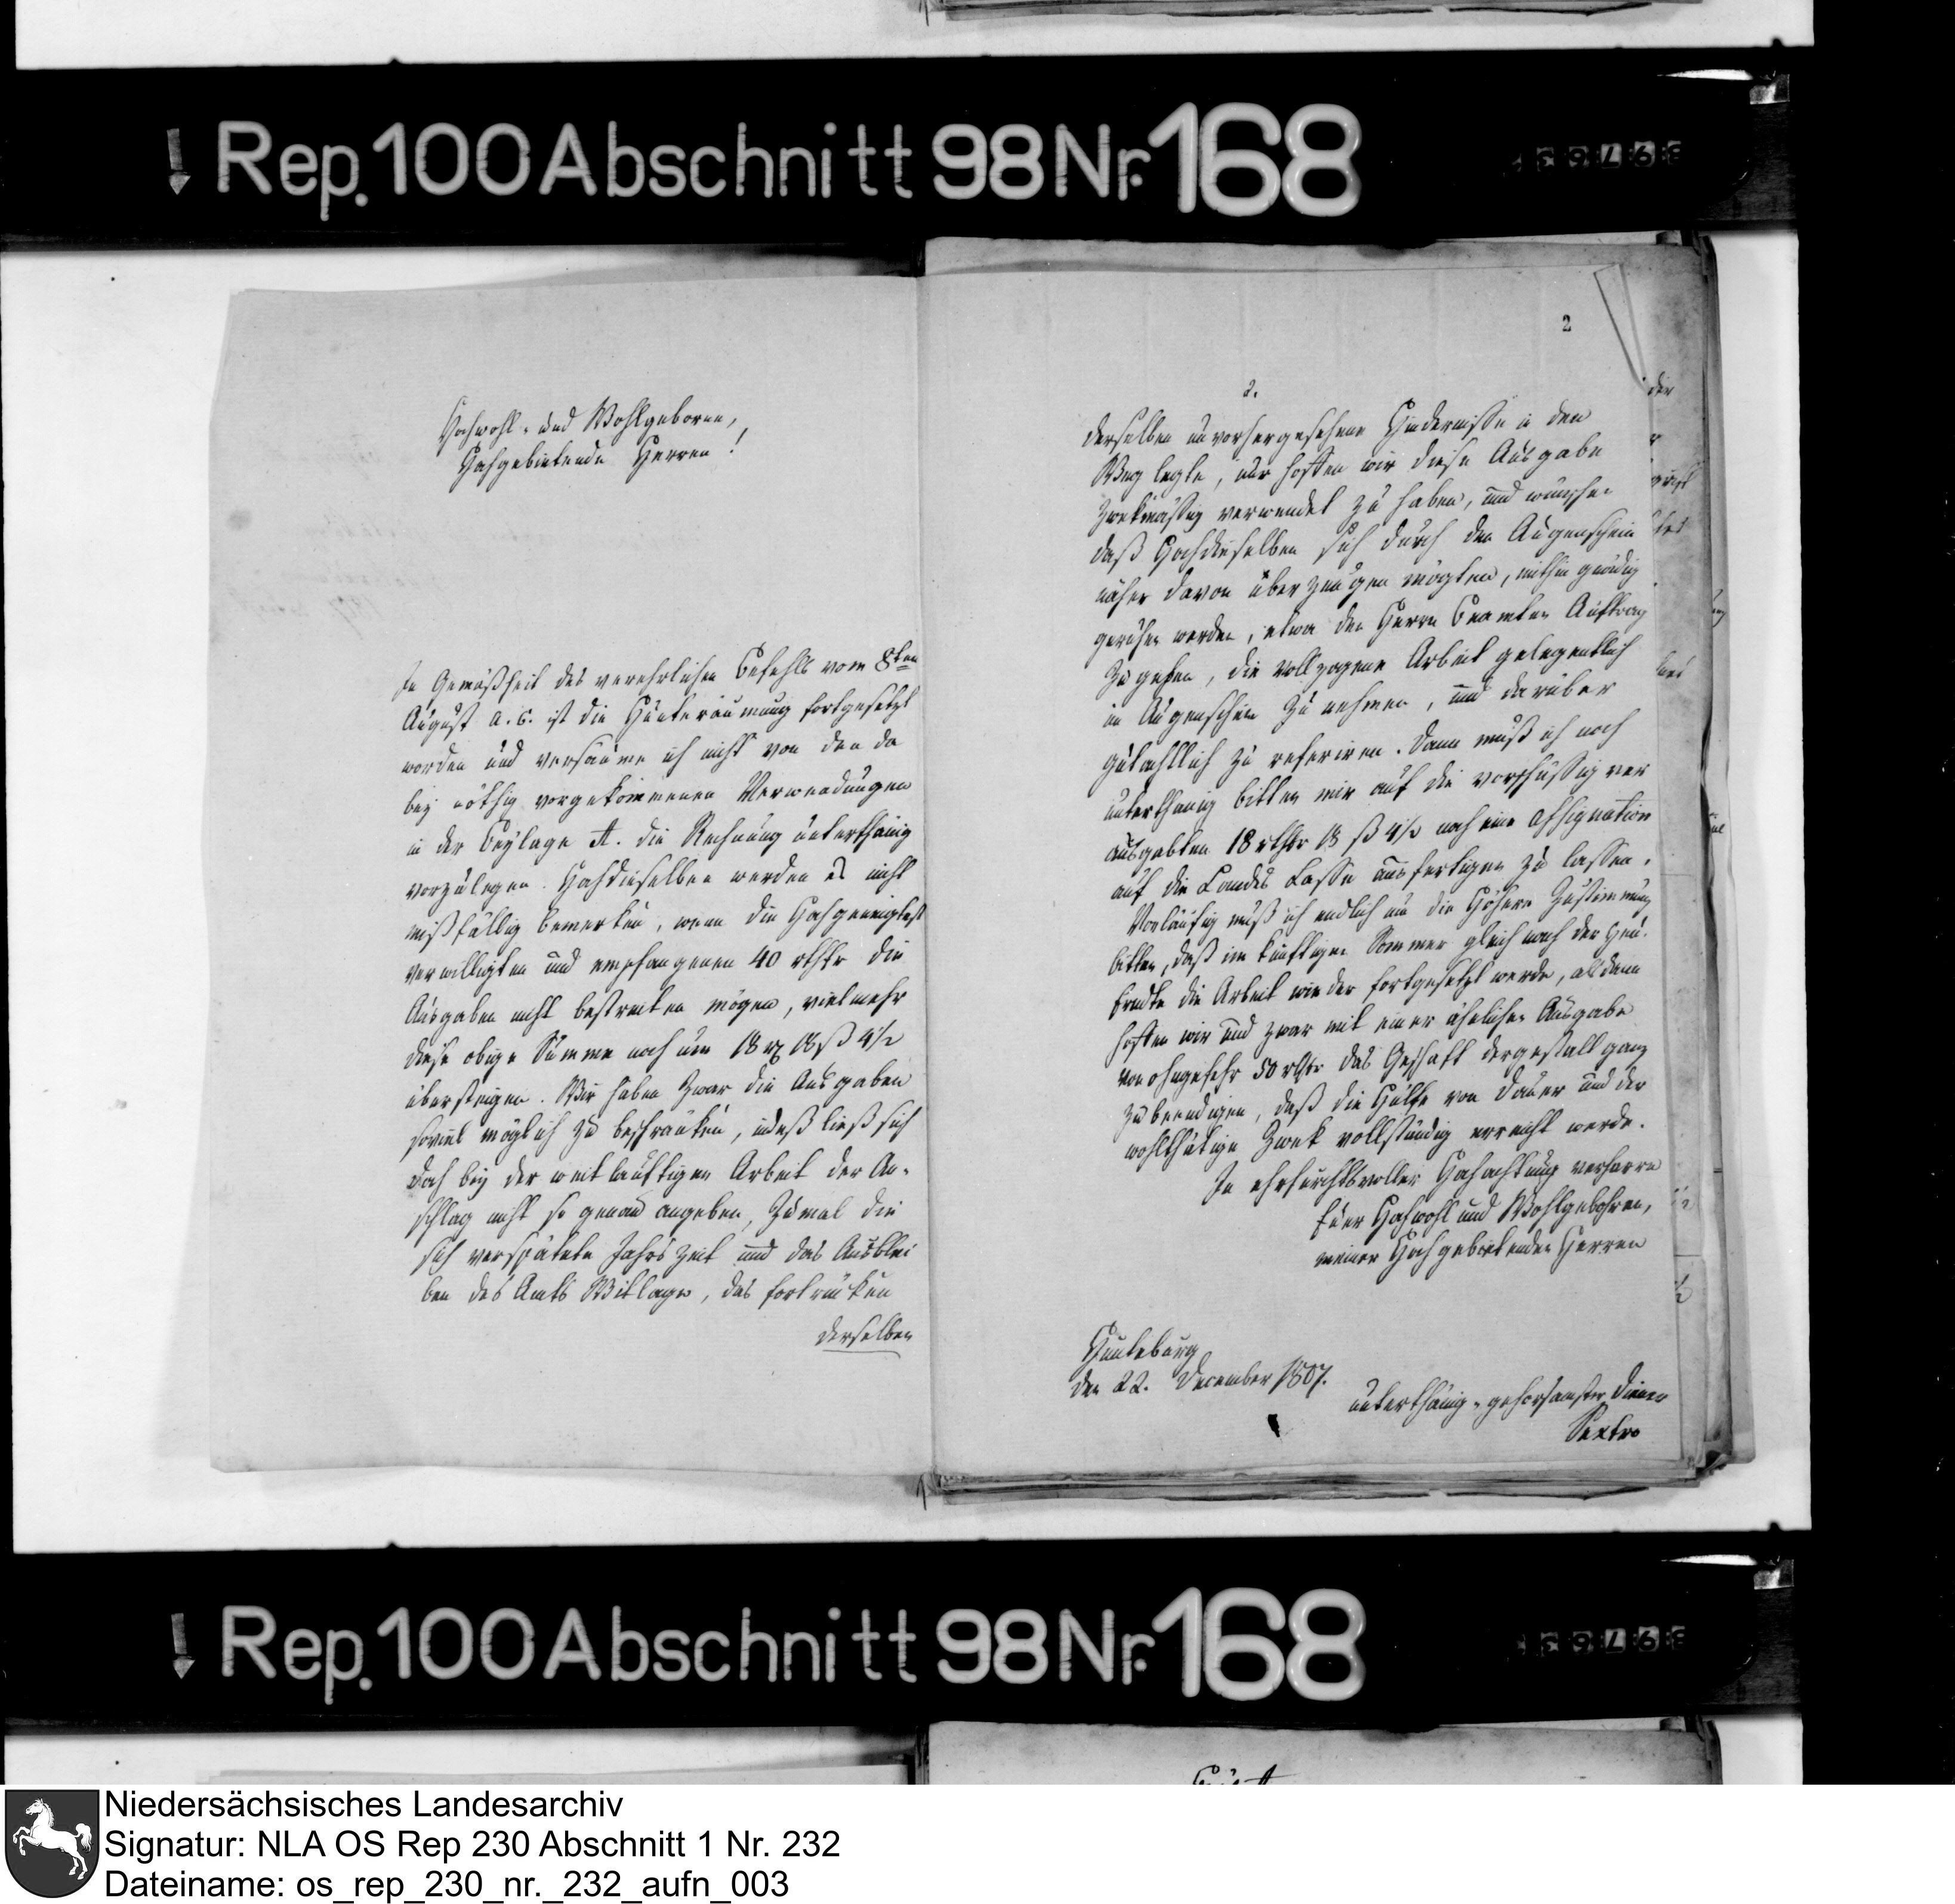 Rep. 100 Abschnitt 98 Nr. 168
Hochwohl- und Wohlgeborne,
Hochgebietende Herren!
In Gemäßheit des verehrlichen Befehls vom 8ten
August a. c. ist die Hunteräumung fortgesetzt
worden und versäume ich nicht von den da
bey nöthig vorgekommenen Verwendungen
in der Beylage A. die Rechnung unterthänig
vorzulegen. Hochdieselben werden es nicht
mißfällig bemerken, wenn die Hochgeneigtest
verwilligten und empfangenen 40 rthlr die
Ausgaben nicht bestreiten mögen, vielmehr
diese obige Summe noch um 18 rt 18 ß 4½
übersteigen. Wir haben zwar die Ausgaben
soviel möglich zu beschränken, indeß ließ sich
doch bey der weitläuftigen Arbeit der An-
schlag nicht so genau angeben, zumal die
sich verspätete Jahrszeit und das Ausblei
ben des Amts Wittlage, das fortrücken
derselben
2
2.
derselben unvorhergesehene Hinderniße in den
Weg legte, nur hoffen wir diese Ausgabe
zwekmäßig verwendet zu haben, und wünschen
daß Hochdieselben sich durch den Augenschein
näher davon überzeugen mögten, mithin gnädig
geruhen werden, etwa den Herrn Beamten Auftrag
zu geben, die vollzogene Arbeit gelegentlich
in Augenschein zu nehmen, und darüber
gutachtlich zu referiren. Dann muß ich noch
unterthänig bitten mir auf die vorschüssig ver
ausgabten 18 rthlr 18 ß 4½ noch eine Assignation
auf die Landes Casse ausfertigen zu lassen.
Vorläufig muß ich endlich um die Höhere Zustimmung
bitten, daß im künftigen Sommer gleich nach der Heu-
Erndte die Arbeit wieder fortgesetzt werde, alsdann
hoffen wir und zwar mit einer ähnlichen Ausgabe
von ohngefehr 50 rthlr das Geschäft dergestalt ganz
zu beendigen, daß die Hülfe von Dauer und der
wohlthätige Zwek vollständig erreicht werde.
In ehrfurchtsvoller Hochachtung verharre
Euer Hochwohl und Wohlgebohren,
meiner Hochgebietenden Herren
Hunteburg
den 22. December 1807.
unterthänig-gehorsamster Diener
Sextro
Rep. 100 Abschnitt 98 Nr. 168
Niedersächsisches Landesarchiv
Signatur: NLA OS Rep 230 Abschnitt 1 Nr. 232
Dateiname: os_rep_230_nr._232_aufn_003